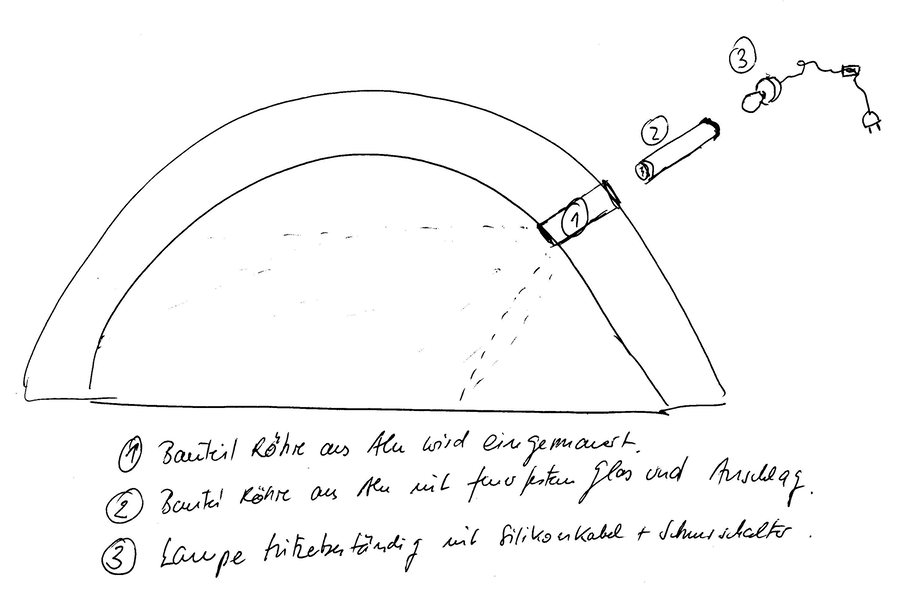 3
2
1
1 Bauteil Röhre aus Alu wird eingemauert.
2 Bauteil Röhre aus Alu mit feuerfestem Glas und Anschlag.
3 Lampe hitzebeständig mit Silikonkabel + Schnurschalter.